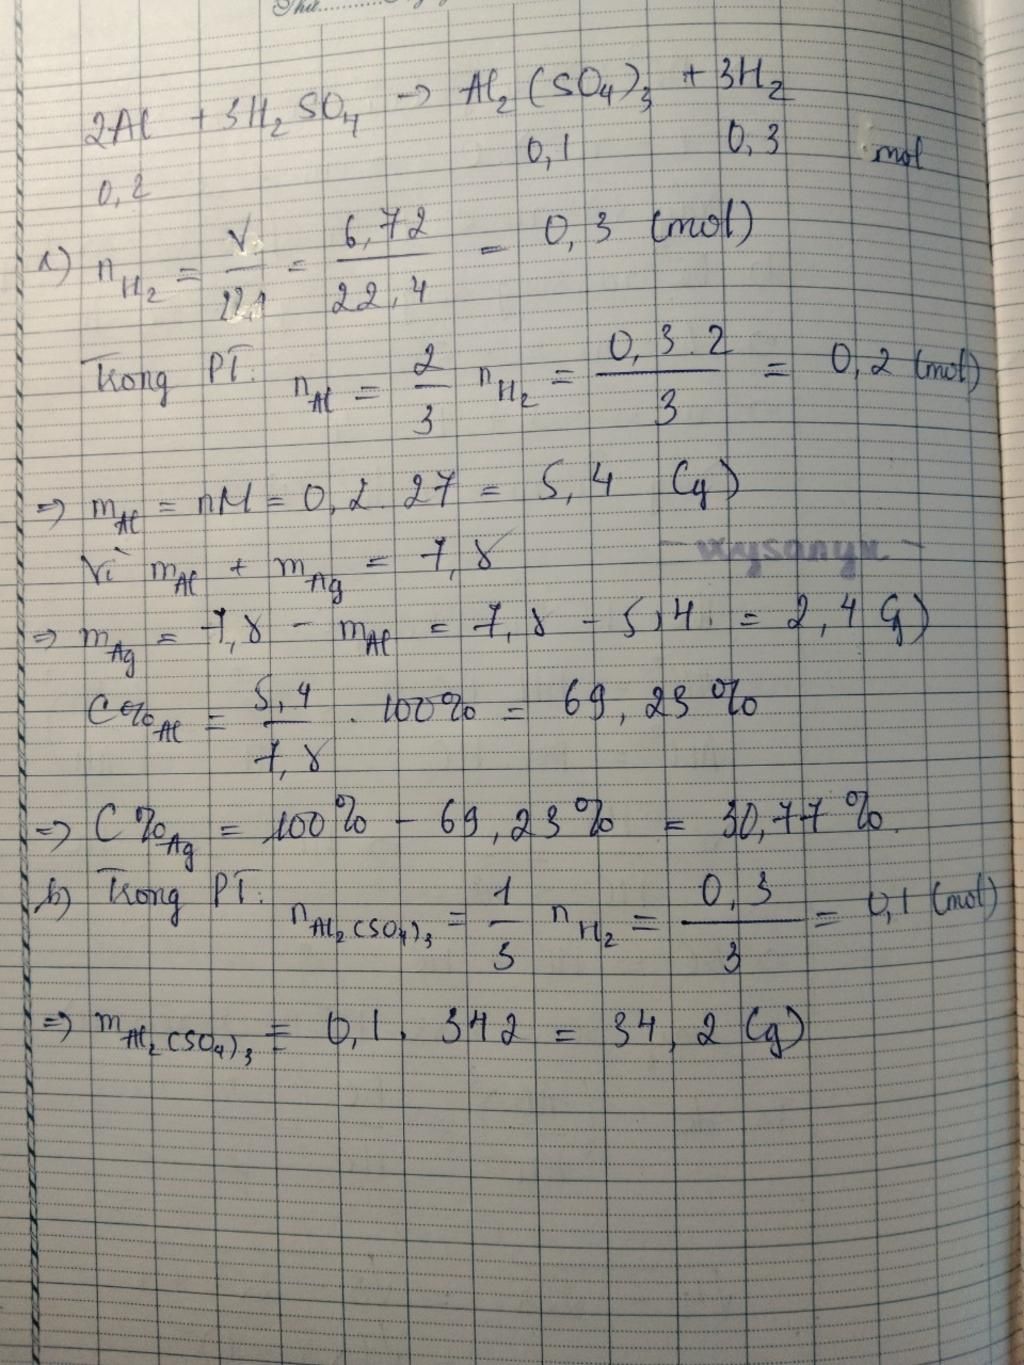 Thứ
2Al + 3H2SO4 → Al2(SO4)3 + 3H2
0,2 0,1 0,3 mol
a) nH2 = V/22,4 = 6,72/22,4 = 0,3 (mol)
Trong PT: nAl = 2/3 nH2 = 0,3.2/3 = 0,2 (mol)
⇒ mAl = nM = 0,2.27 = 5,4 (g)
Vì mAl + mAg = 7,8
⇒ mAg = 7,8 - mAl = 7,8 - 5,4 = 2,4 (g)
C%Al = 5,4/7,8 . 100% = 69,23%
⇒ C%Ag = 100% - 69,23% = 30,77%
b) Trong PT: nAl2(SO4)3 = 1/3 nH2 = 0,3/3 = 0,1 (mol)
⇒ mAl2(SO4)3 = 0,1.342 = 34,2 (g)